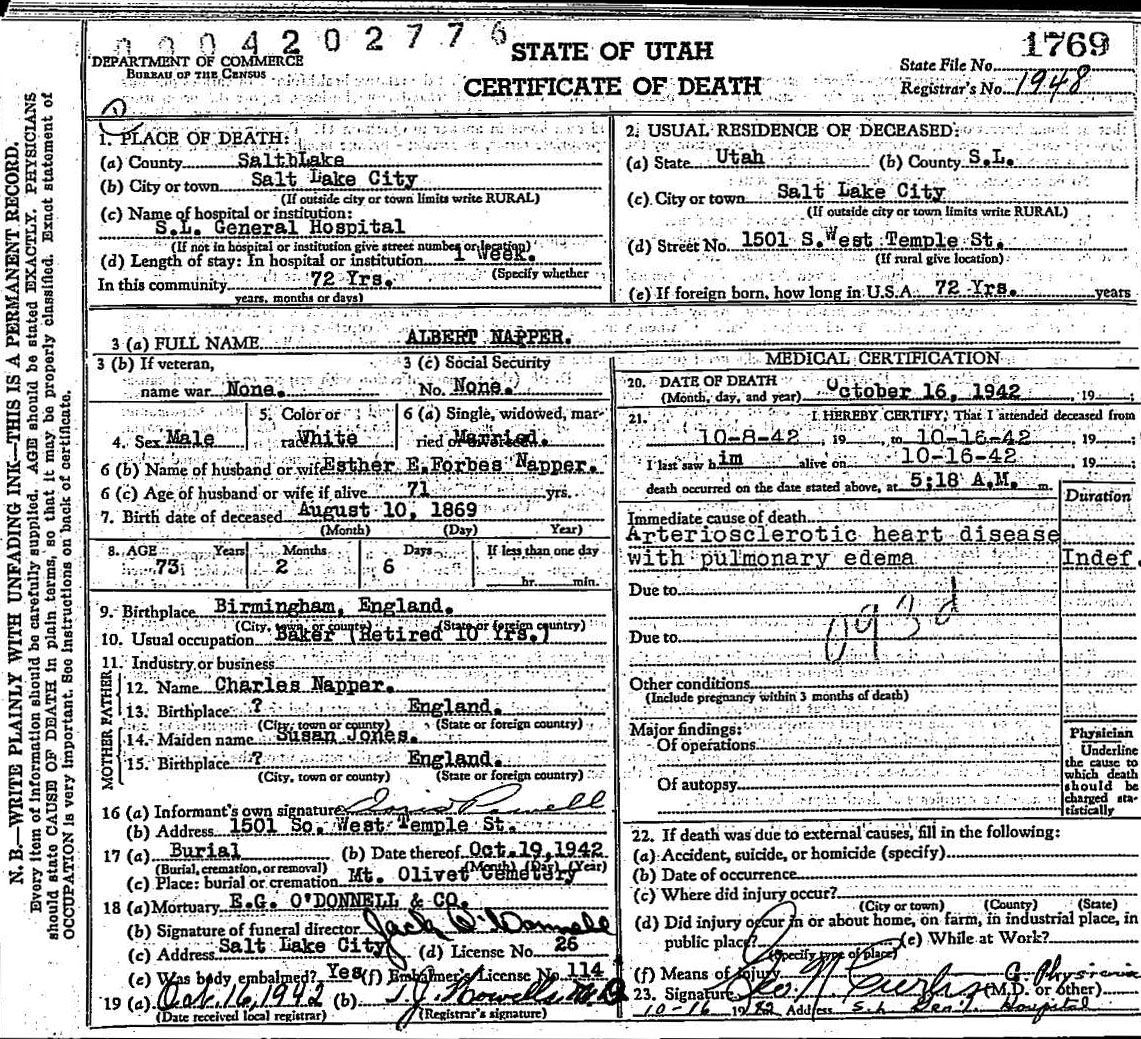 N. B.—WRITE PLAINLY WITH UNFADING INK—THIS IS A PERMANENT RECORD.
Every item of information should be carefully supplied. AGE should be stated EXACTLY. PHYSICIANS
should state CAUSE OF DEATH in plain terms, so that it may be properly classified. Exact statement of
OCCUPATION is very important. See instructions on back of certificate.
0004202776
DEPARTMENT OF COMMERCE
BUREAU OF THE CENSUS
STATE OF UTAH
CERTIFICATE OF DEATH
1769
State File No.
Registrar's No. 1948
1. PLACE OF DEATH:
(a) County SalthLake
(b) City or town Salt Lake City
(If outside city or town limits write RURAL)
(c) Name of hospital or institution:
S.L. General Hospital
(If not in hospital or institution give street number or location)
(d) Length of stay: In hospital or institution 1 Week.
(Specify whether
In this community 72 Yrs.
years, months or days)
2. USUAL RESIDENCE OF DECEASED:
(a) State Utah (b) County S.L.
(c) City or town Salt Lake City
(If outside city or town limits write RURAL)
(d) Street No. 1501 S.West Temple St.
(If rural give location)
(e) If foreign born, how long in U.S.A. 72 Yrs. years
3 (a) FULL NAME ALBERT NAPPER.
3 (b) If veteran,
name war None.
3 (c) Social Security
No. None.
4. Sex Male
5. Color or
race White
6 (a) Single, widowed, mar-
ried or Married.
6 (b) Name of husband or wife Esther E.Forbes Napper.
6 (c) Age of husband or wife if alive 71 yrs.
7. Birth date of deceased August 10, 1869
(Month) (Day) Year)
8. AGE Years Months Days If less than one day
73 2 6 hr. min.
9. Birthplace Birmingham, England.
(City, town, or county) (State or foreign country)
10. Usual occupation Baker (Retired 10 Yrs.)
11. Industry or business
FATHER
12. Name Charles Napper.
13. Birthplace ? England.
(City, town or county) (State or foreign country)
MOTHER
14. Maiden name Susan Jones.
15. Birthplace ? England.
(City, town or county) (State or foreign country)
16 (a) Informant's own signature Powell
(b) Address 1501 So. West Temple St.
17 (a) Burial (b) Date thereof Oct.19,1942
(Burial, cremation, or removal) (Month) (Day) (Year)
(c) Place: burial or cremation Mt. Olivet Cemetery
18 (a) Mortuary E.G. O'DONNELL & CO.
(b) Signature of funeral director Jack O'Donnell
(c) Address Salt Lake City (d) License No. 26
(e) Was body embalmed? Yes (f) Embalmer's License No. 114
19 (a) Oct. 16, 1942 (b) T.J. Howells M.D.
(Date received local registrar) (Registrar's signature)
MEDICAL CERTIFICATION
20. DATE OF DEATH
(Month, day, and year) October 16, 1942 , 19 ;
21. I HEREBY CERTIFY, That I attended deceased from
10-8-42 , 19 , to 10-16-42 , 19 ;
I last saw him alive on 10-16-42 , 19 ;
death occurred on the date stated above, at 5:18 A.M. m.
Duration
Immediate cause of death
Arteriosclerotic heart disease
with pulmonary edema Indef.
Due to
093d
Due to
Other conditions
(Include pregnancy within 3 months of death)
Major findings:
Of operations
Of autopsy
Physician
Underline
the cause to
which death
should be
charged sta-
tistically
22. If death was due to external causes, fill in the following:
(a) Accident, suicide, or homicide (specify)
(b) Date of occurrence
(c) Where did injury occur?
(City or town) (County) (State)
(d) Did injury occur in or about home, on farm, in industrial place, in
public place? (e) While at Work?
(Specify type of place)
(f) Means of Injury
23. Signature Geo. N. Curtis G. Physician
(M.D. or other)
10-16 1942 Address S.L. Gen'l. Hospital